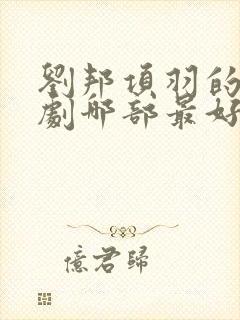 劉邦項羽的
劇哪部最好
億君歸